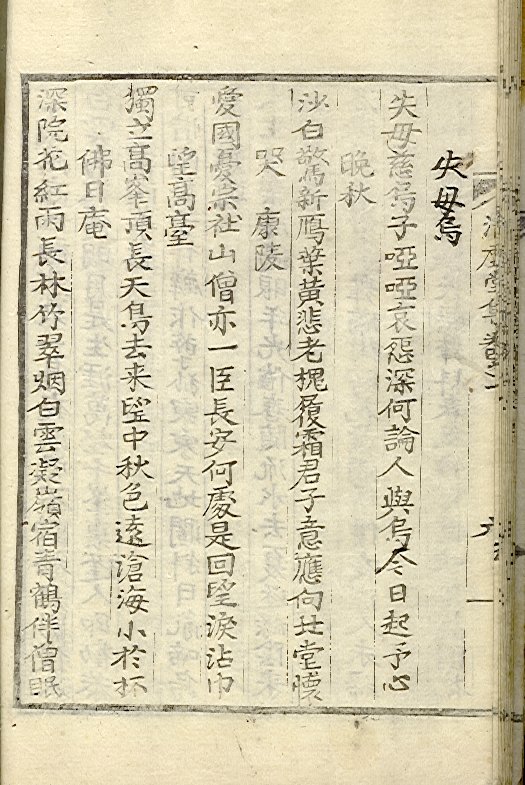 失母烏
失母慈烏子啞啞哀怨深何論人與烏今日起予心
晩秋
沙白驚新鴈葉黃悲老槐履霜君子意應向北堂懷
哭 康陵
愛國憂宗社山僧亦一臣長安何處是回望淚沾巾
望高臺
獨立高峯頂長天鳥去來望中秋色遠滄海小於杯
佛日庵
深院花紅雨長林竹翠烟白雲凝嶺宿青鶴伴僧眠